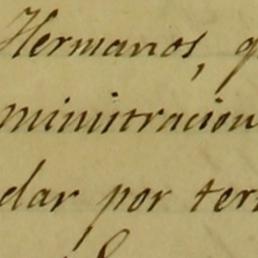 Hermanos, q
ministracion
dar por ter